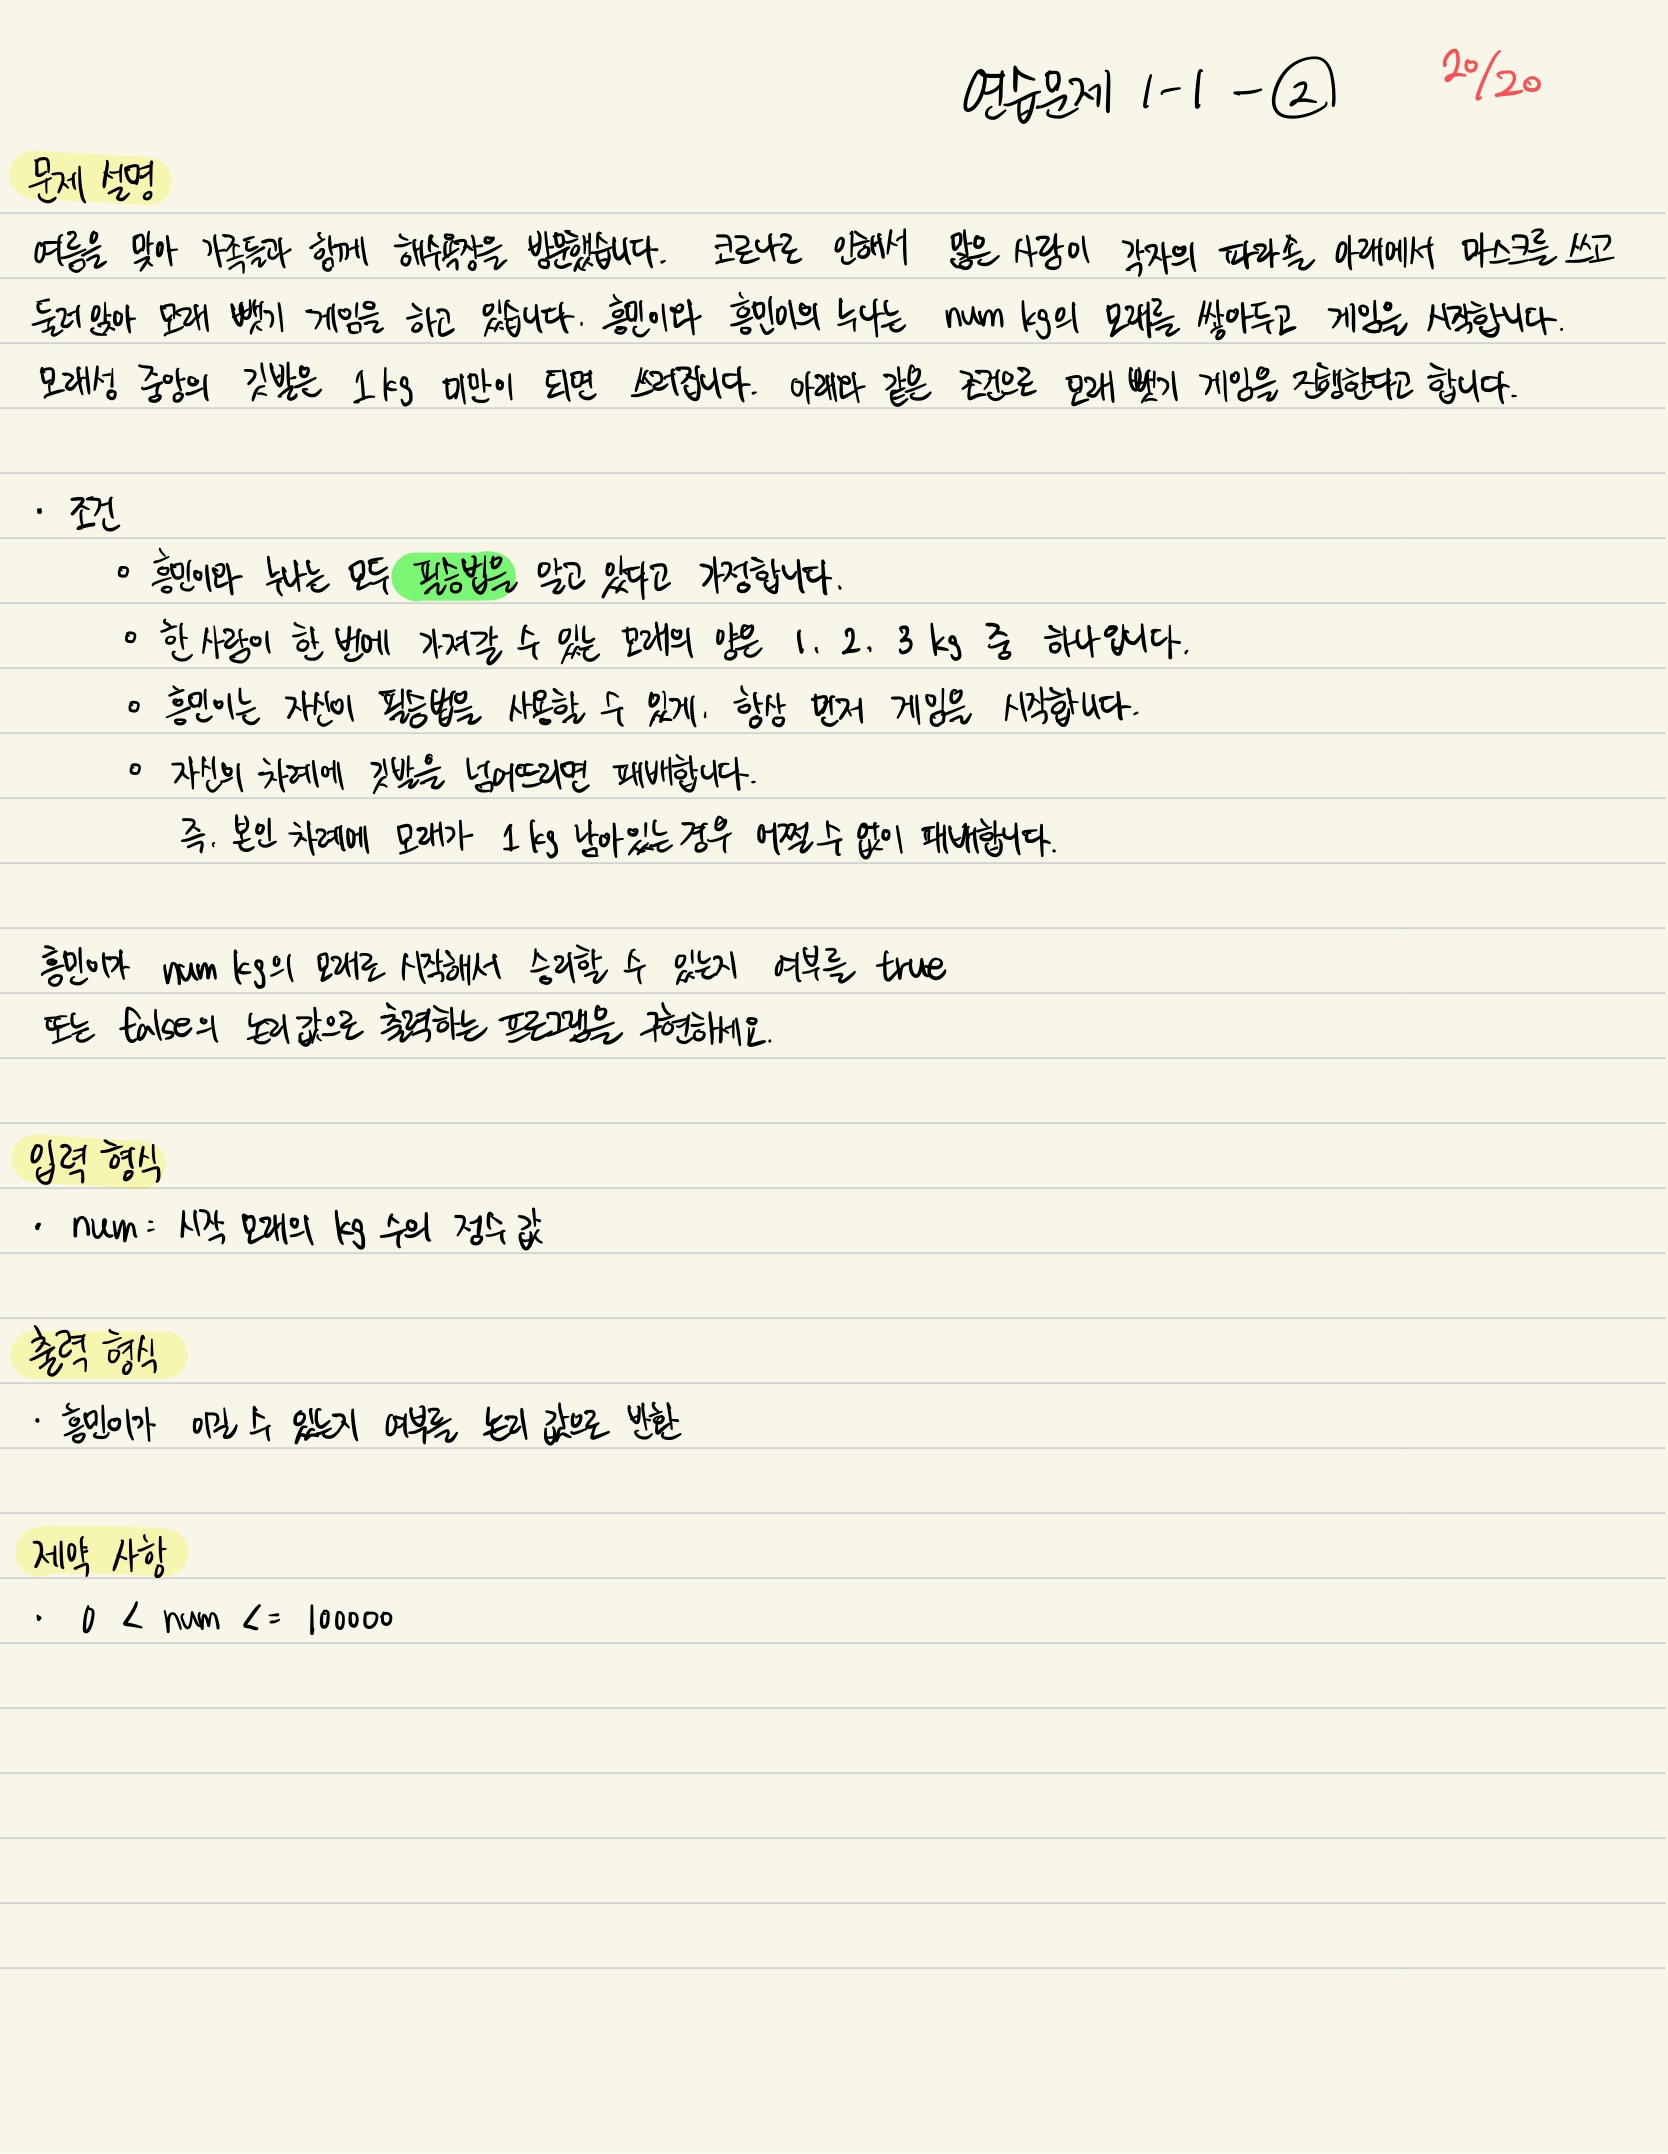 연습문제 1-1 - ② 20/20
문제 설명
여름을 맞아 가족들과 함께 해수욕장을 방문했습니다. 코로나로 인해서 많은 사람이 각자의 파라솔 아래에서 마스크를 쓰고
둘러 앉아 모래 뺏기 게임을 하고 있습니다. 흥민이와 흥민이의 누나는 num kg의 모래를 쌓아두고 게임을 시작합니다.
모래성 중앙의 깃발은 1 kg 미만이 되면 쓰러집니다. 아래와 같은 조건으로 모래 뺏기 게임을 진행한다고 합니다.
· 조건
o 흥민이와 누나는 모두 필승법을 알고 있다고 가정합니다.
o 한 사람이 한 번에 가져갈 수 있는 모래의 양은 1, 2, 3 kg 중 하나입니다.
o 흥민이는 자신이 필승법을 사용할 수 있게, 항상 먼저 게임을 시작합니다.
o 자신의 차례에 깃발을 넘어뜨리면 패배합니다.
즉, 본인 차례에 모래가 1 kg 남아있는 경우 어쩔 수 없이 패배합니다.
흥민이가 num kg의 모래로 시작해서 승리할 수 있는지 여부를 true
또는 false의 논리 값으로 출력하는 프로그램을 구현하세요.
입력 형식
· num = 시작 모래의 kg 수의 정수 값
출력 형식
· 흥민이가 이길 수 있는지 여부를 논리 값으로 반환
제약 사항
· 0 < num <= 100000